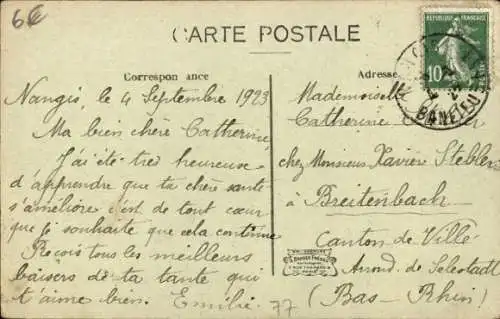 6€
CARTE POSTALE
Correspondance
Adresse
RÉPUBLIQUE FRANÇAISE
10
Nangis, le 4 Septembre 1923
Ma bien chère Catherine,
J'ai été très heureuse
d'apprendre que ta chère santé
s'améliore c'est de tout cœur
que je souhaite que cela continue
Reçois tous les meilleurs
baisers de ta tante qui
t'aime bien. Emilie
77
Mademoiselle
Catherine
chez Monsieur Xavier Stebler
Breitenbach
Canton de Villé
Arrond. de Sélestadt
(Bas-Rhin)